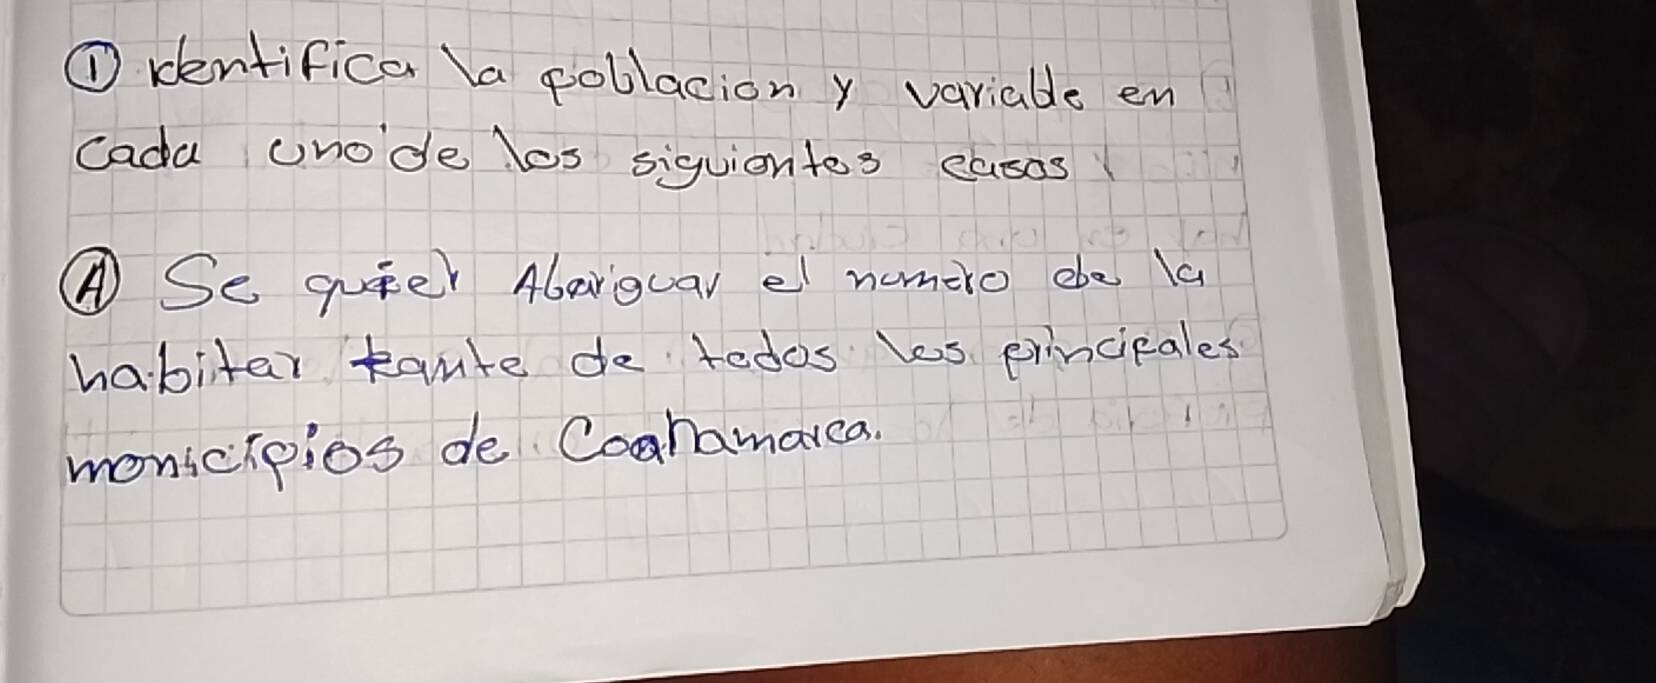 ① identifica la poblacion y variable en
cada uno de los siguientes casos
Ⓐ Se quier Abariguar el numero de la
habitar tante de todos los principales
monicipios de Coahamarca.